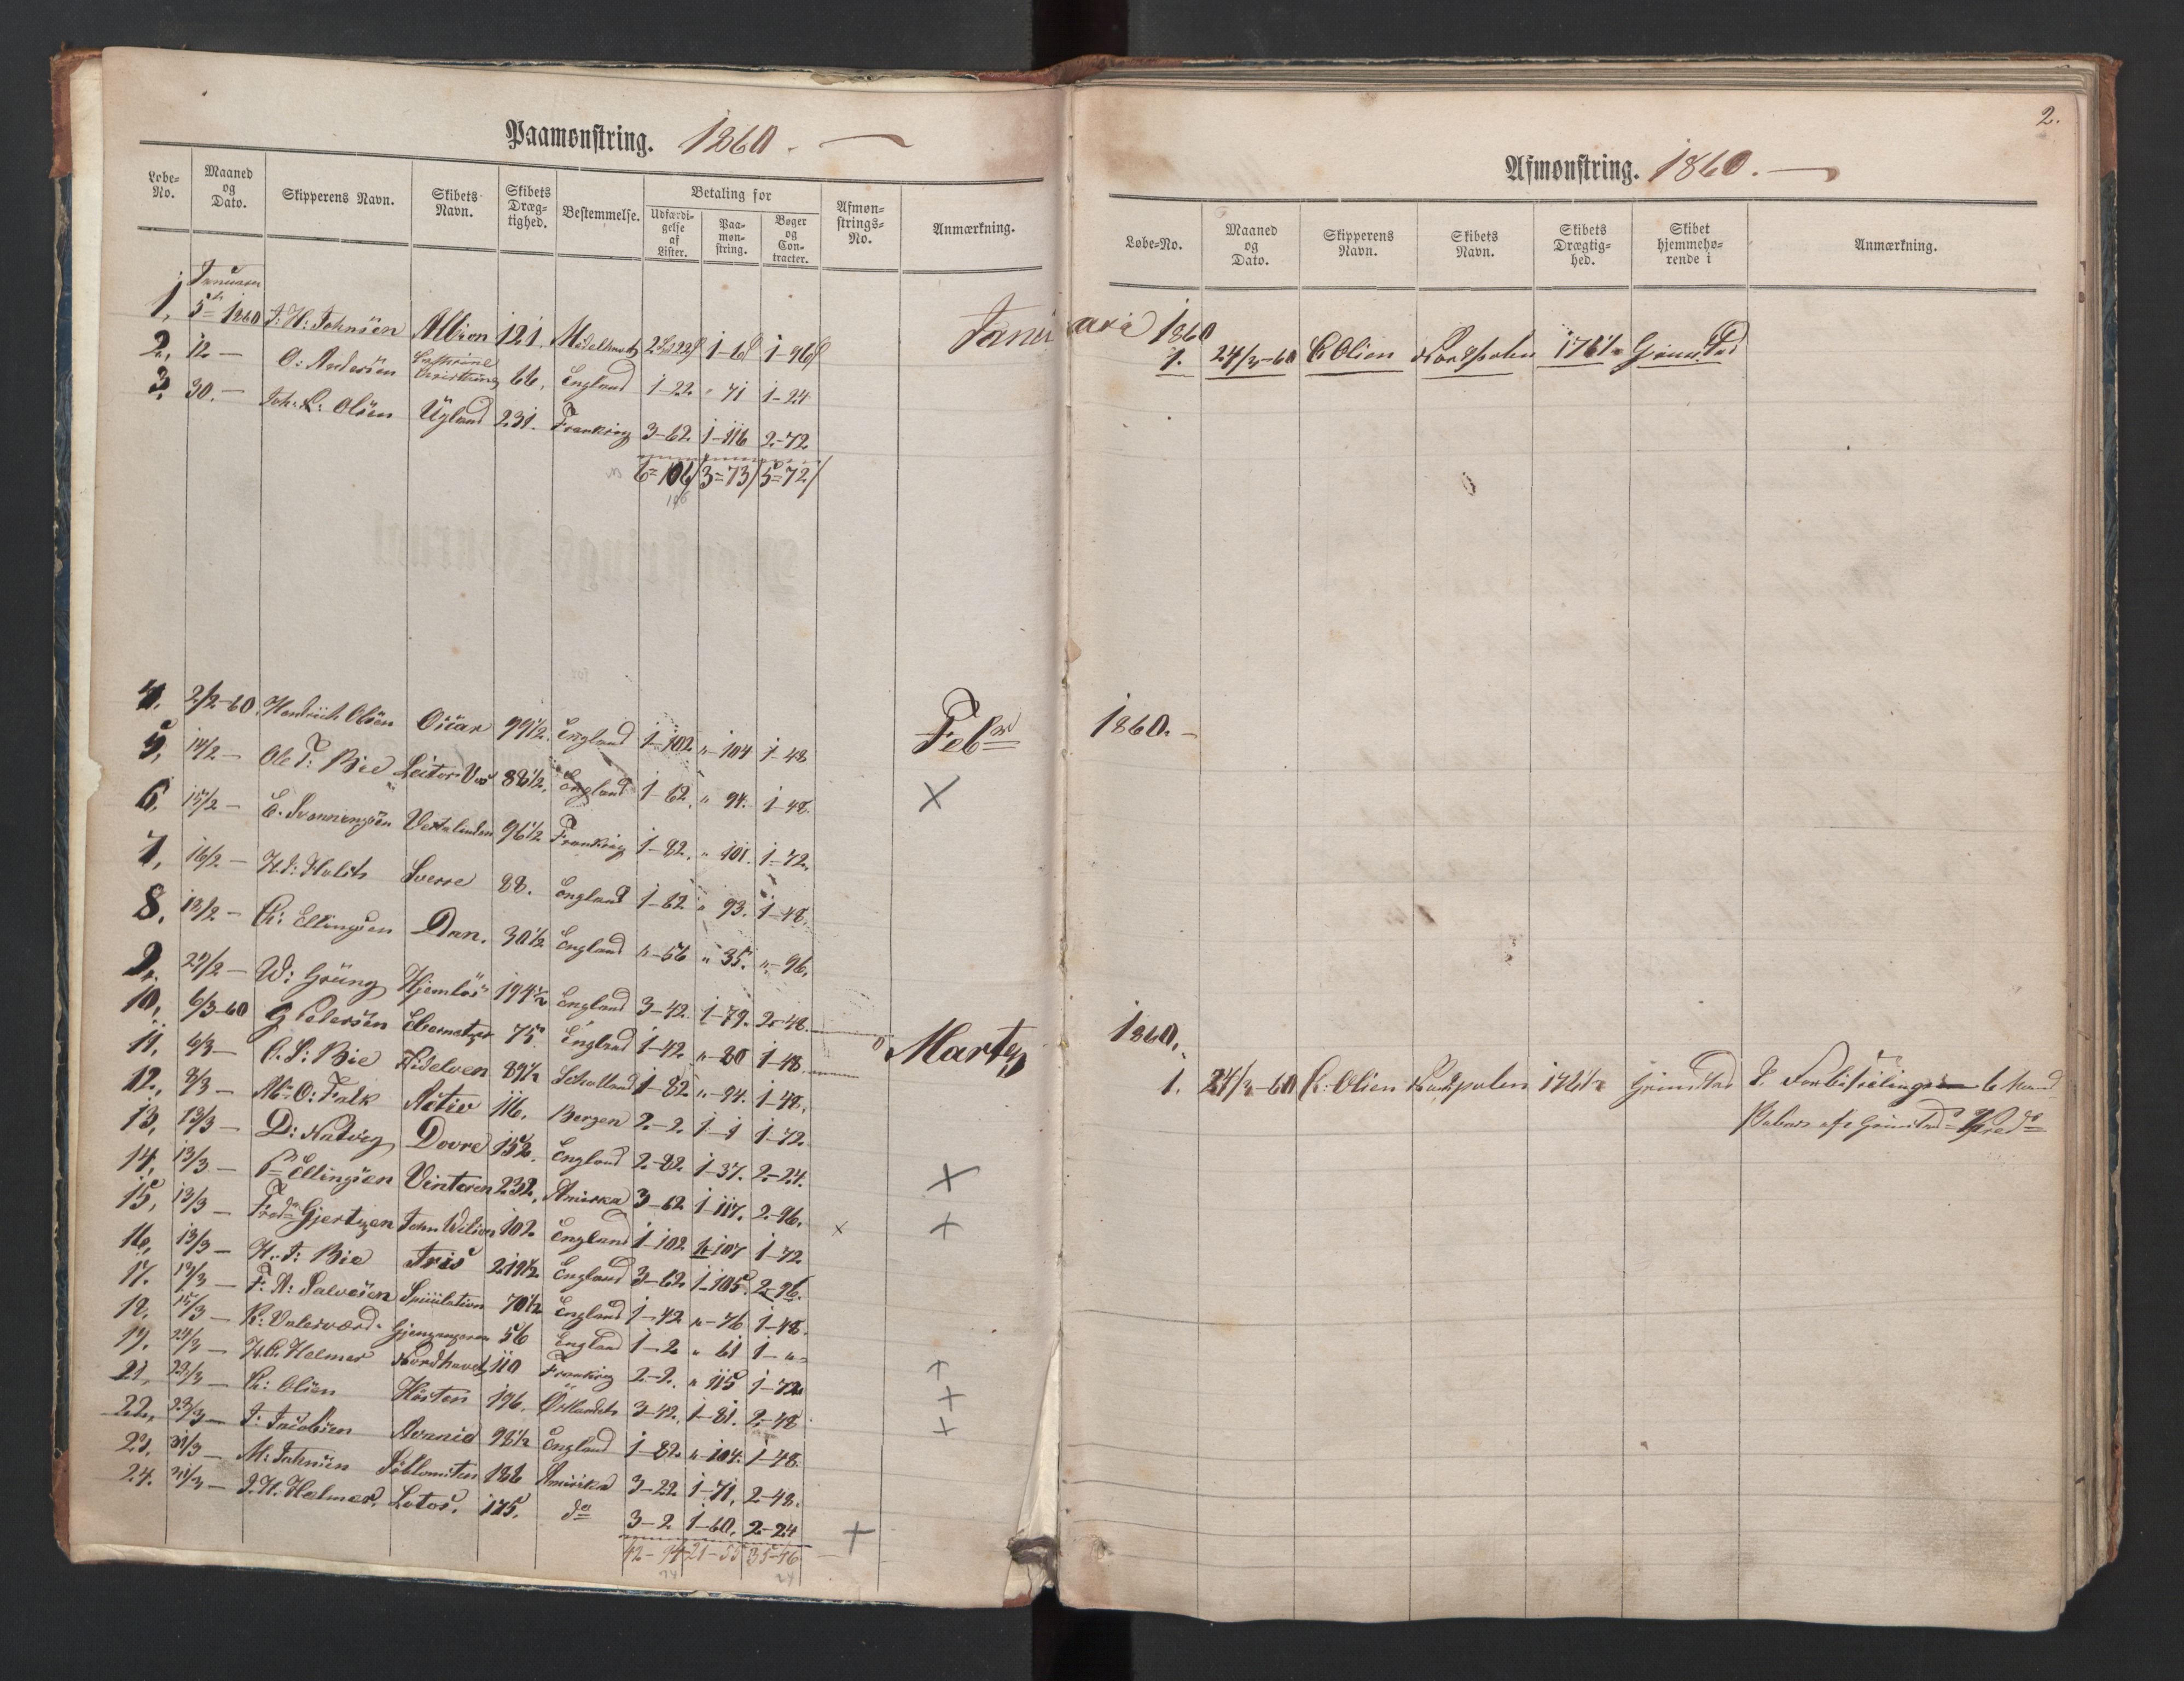 Paamønstring. 1860.
Løbe-No. Maaned og Dato. Skipperens Navn. Skibets Navn. Skibets Dræg-tighed. Bestemmelse. Betaling for Udfærdi-gelse af Lister. Paa-møn-string. Bøger og Con-tracter. Afmøn-strings-No. Anmærkning.
Januar
1, 5te 1860 J: H: Johnsen Albion 121. 2 22 1-6 1-96
2, 12 — O: Andersen Christiane 66, England 1-22 " 71 1-24
3, 30. — Joh. L: Olsen Ügland 231. Frankrig 3-62 1-116 2-72
6=106 3=73 5=72
Febr
4, 2/2-60 Hendrich Olsen Oscar 99 1/2. England 1-102 " 104 1-48
5, 14/2 — Ole T: Bie 88 1/2, England 1-62, " 94. 1-48.
6, 15/2 — E. Svenningsen Vestalinden 96 1/2 Frankrig 1-82, " 101. 1-72,
7, 16/2 — Sverre 88. England 1-82 " 93. 1-48.
8, 18/2 — Ch: Ellingsen Dan. 30 1/2 England "-56 " 35. "-96.
9, 29/2 — W: Grüng Hjemløs 194 1/2 England 3-42 1-79. 2-48.
Marts
10, 6/3-60 G Pedersen Ebernetzer 75 England 1-42. "-80 1-48.
11, 6/3 — O. S: Bie Nidelven 89 1/2 Schotland 1-82 "-94. 1-48.
12, 8/3 — O: Falk Activ 116. Bergen 2-2. 1-1 1-72.
13, 13/3 — D: Natvig Dovre 152. England 2-82 1-37. 2-24.
14, 13/3 — Ellingsen Vinteren 232, Amerika 3-62 1-117. 2-96.
15, 13/3 — Gjertzen John Wilson 102. England 1-102 107 1-72
16, 13/3 — H. J: Bie Iris 219 1/2 England 3-62 1-105. 2-96.
17. 13/3 — F. A: Salvesen Speculation 70 1/2 England 1-42 "-76 1-48.
18, 15/3 — K: Gjengangeren 56 England 1-2 " 61 1-"
19. 24/3 — H. C. Helmer Nordhavet 110 Frankrig 2-2. " 115 1-72
21, 23/3 — K: Olsen Høsten 196. Østlandet 3-42. 1-81. 2-48
22, 23/3 — J: Jacobsen 98 1/2 England 1-82 "-104. 1-48.
23. 31/3 — M: Johnsen 186 Amerika 3-22 1-71, 2-48.
24. 31/3 — J. H. Helmer, Lotos. 175. do 3-2 1-60, 2-24
42-94 21-55 35-46
2.
Afmønstring. 1860.
Løbe-No. Maaned og Dato. Skipperens Navn. Skibets Navn. Skibets Drægtig-hed. Skibet hjemmehø-rende i Anmærkning.
Januaria 1860
1. 24/3-60 K Olsen Nordpolen 176 1/2 Grimstad
1860.
1860.
1. 24/3-60 K: Olsen Nordpolen 176 1/2 Grimstad